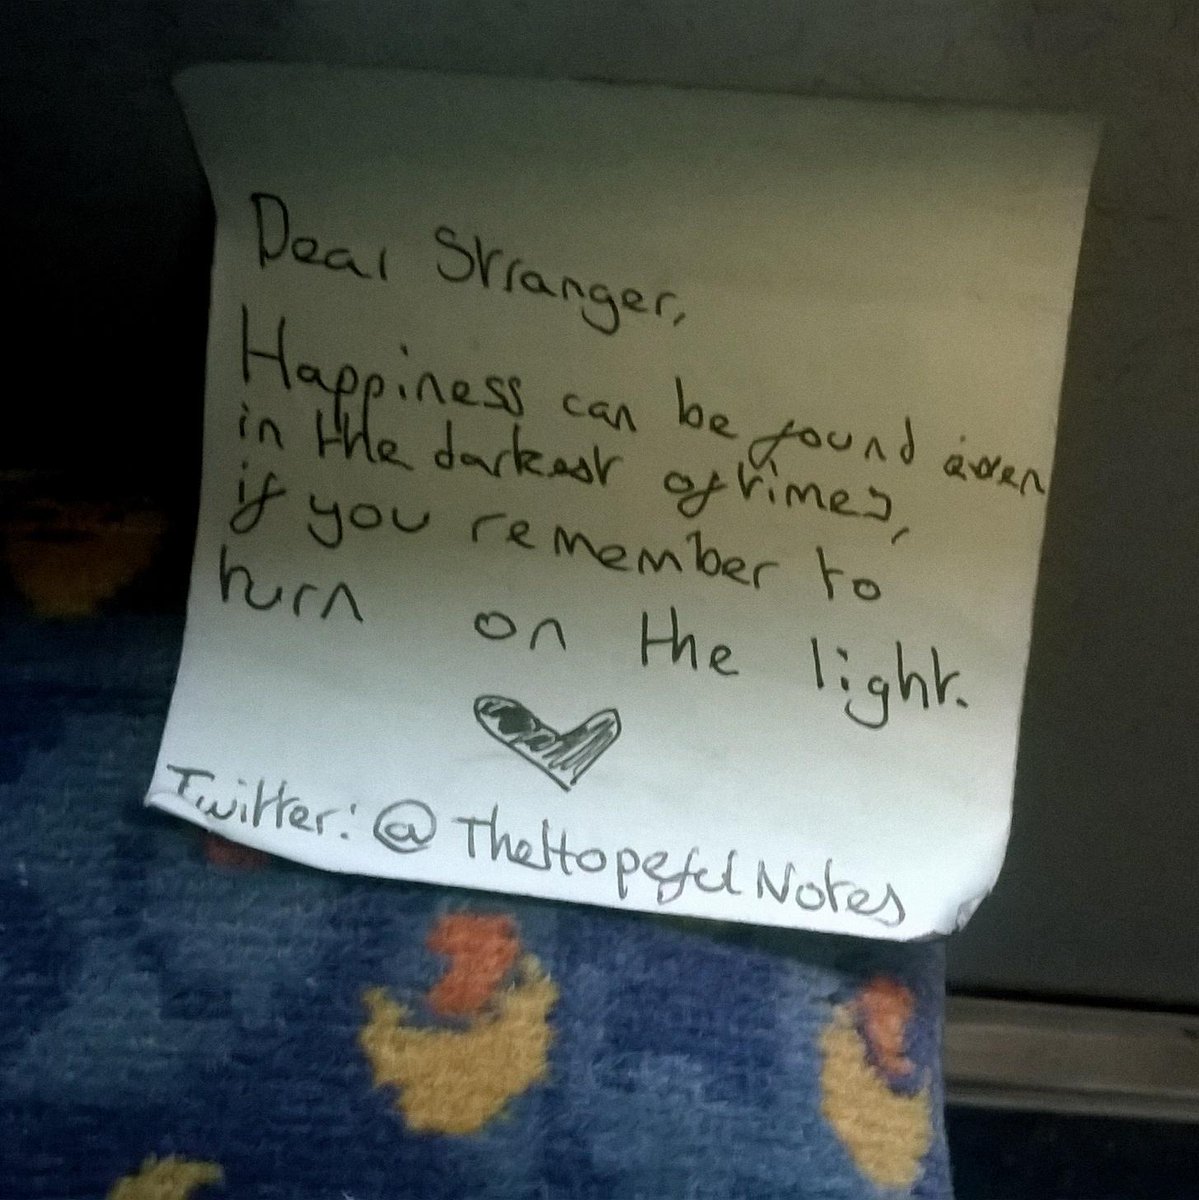 Dear Stranger,
Happiness can be found even
in the darkest of times,
if you remember to
turn on the light.
Twitter: @TheHopefulNotes